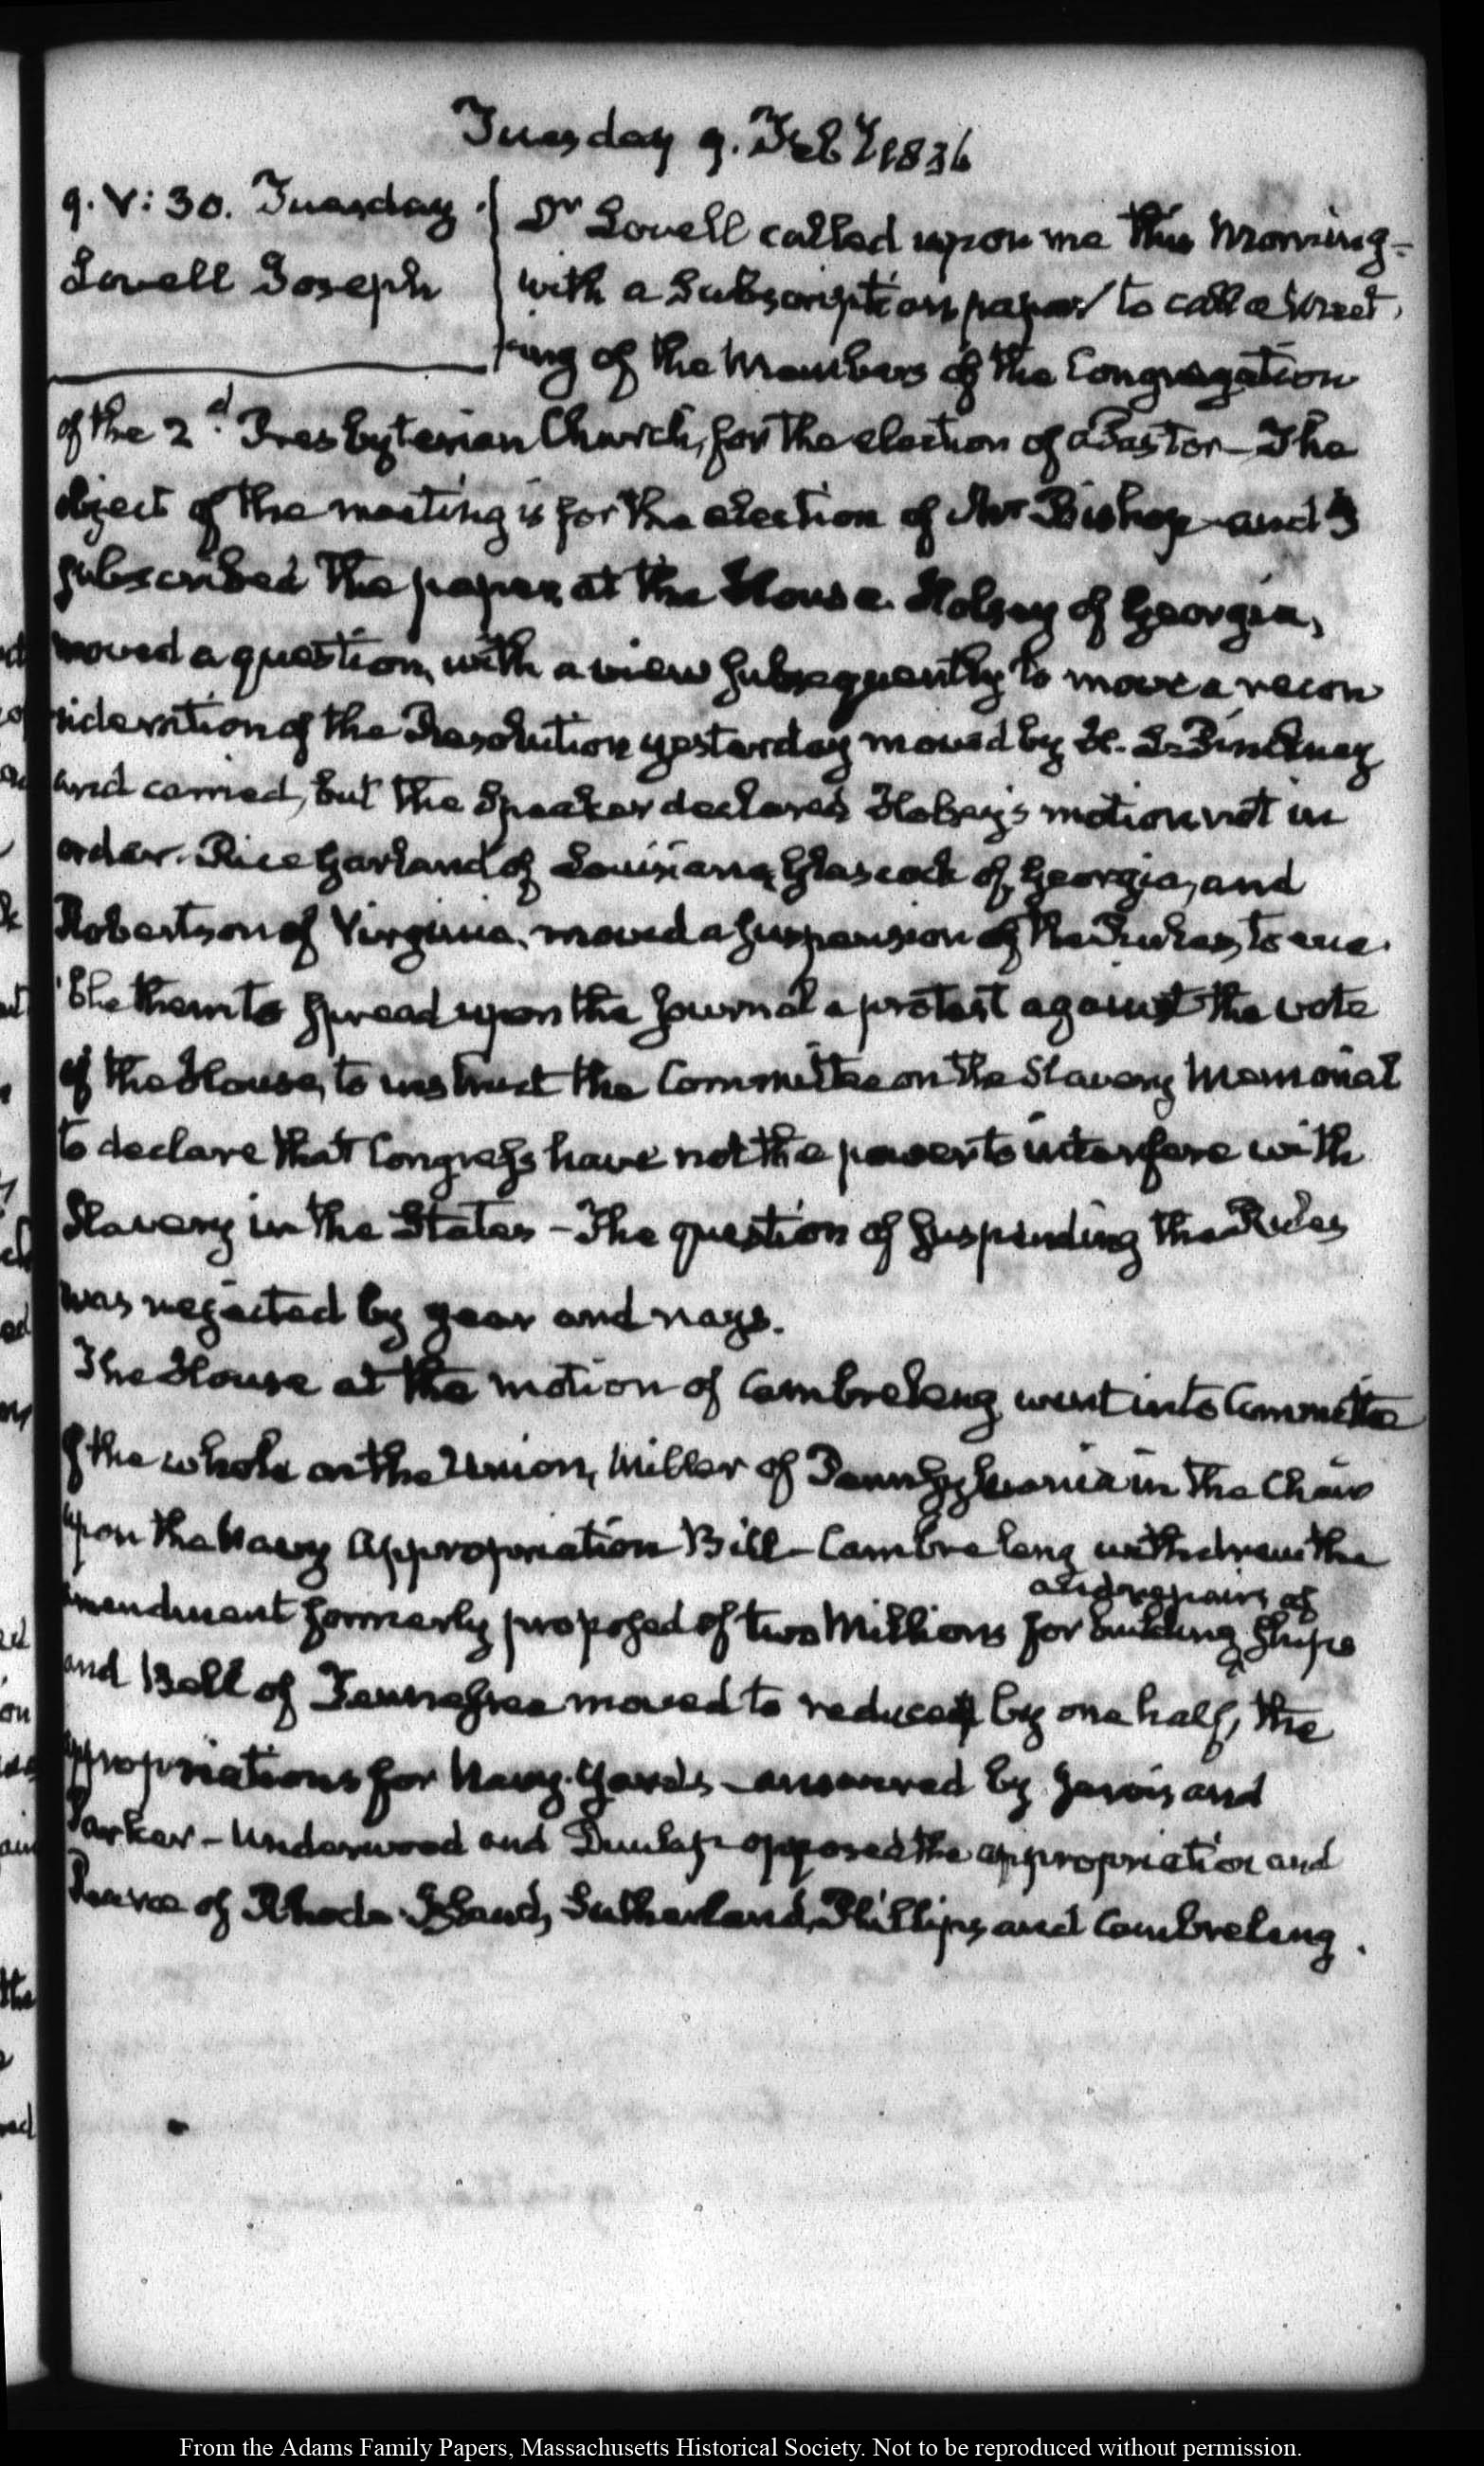 Tuesday 9. Feby 1836
9. V:30. Tuesday.
Lovell Joseph
Dr Lovell called upon me this Morning
with a Subscription paper to call a meet-
ing of the Members of the Congregation
of the 2d. Presbyterian Church, for the election of a Pastor— The
object of the meeting is for the election of Mr Bishop and I
subscribed the paper, at the House. Holsey of Georgia,
moved a question, with a view subsequently to move a recon
sideration of the Resolution yesterday moved by H. L. Pinckney
and carried, but the Speaker declared Holsey's motion not in
order. Rice Garland of Louisiana, Glascock of Georgia, and
Robertson of Virginia, moved a suspension of the Rules, to ena-
ble them to spread upon the Journal a protest against the vote
of the House, to instruct the Committee on the Slavery Memorial
to declare that Congress have not the power to interfere with
Slavery in the States – The question of suspending the Rules
was rejected by yeas and nays.
The House at the motion of Cambreleng went into Committee
of the whole on the Union, Miller of Pennsylvania in the Chair
upon the Navy Appropriation Bill – Cambreleng withdrew the
and repairs of
amendment formerly proposed of two Millions for building ^ Ships
and Bell of Tennessee moved to reduce by one half, the
appropriations for Navy-Yards – answered by Jarvis and
Parker – Underwood and Dunlap opposed the appropriation and
Pearce of Rhode Island, Sutherland, Phillips, and Cambreleng.
From the Adams Family Papers, Massachusetts Historical Society. Not to be reproduced without permission.